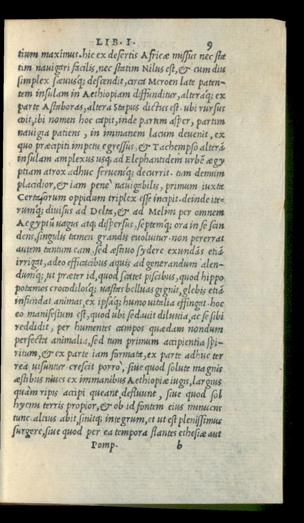 LIB. I. 9
tium maximus. hic ex desertis Africæ missus nec statim
tim navigari facilis, nec statim Nilus est, & cum diu
simplex sævusq; descendit, circa Meroen late patentem
tem insulam in Aethiopiam diffunditur, alteraq; ex
parte Astaboras, altera Stapus dictus est. ubi rursus
coit, ibi nomen hoc capit, inde partim asper, partim
navigia patiens, in immanem lacum devenit, ex
quo præcipiti impetu egressus, & Tachempso alterā
insulam amplexus usq; ad Elephantidem urbē ægy
ptiam atrox adhuc fervensq; decurrit. tum demum
placidior, & iam penè navigabilis, primum iuxta
Certasorum oppidum triplex esse incipit. deinde ite-
rumq; divisus ad Delta, & ad Melim per omnem
Aegyptū vagus atq; dispersus, septemq; ora in se scin
dens, singulis tamen grandis evoluitur. non pererrat
autem tantum eam, sed æstivo sydere exundās etiā
irrigat, adeo efficacibus aquis ad generandum alen-
dumq; ut præter id, quod scatet piscibus, quod hippo
potamos crocodilosq; vastas belluas gignit, glebis etiā
infundat animas, ex ipsaq; humo vitalia effingat. hoc
eo manifestum est, quod ubi sedavit diluvia, ac se sibi
reddidit, per humentes campos quædam nondum
perfecta animalia, sed tum primum accipientia spi-
ritum, & ex parte iam formata, ex parte adhuc ter
rea visuntur crescit porrò, sive quod solutæ magnis
æstibus nives ex immanibus Aethiopiæ iugis, largius
quàm ripis accipi queant defluunt, sive quod sol
hyemi terris propior, & ob id fontem eius minuens
tunc altius abit, sinitq; integrum, et ut est plenissimus
surgere, sive quod per ea tempora flantes ethesiæ aut
Pomp. b